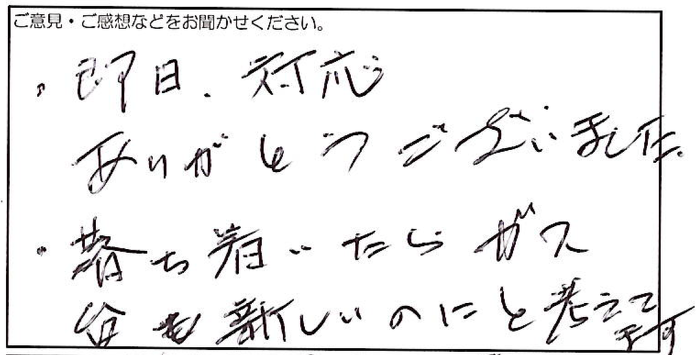 ご意見・ご感想などをお聞かせください。
・即日、対応
ありがとうございました。
・落ち着いたらガス
台も新しいのにと考えて
ます